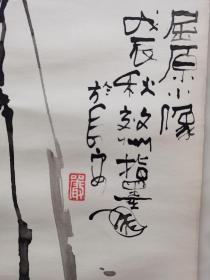 屈原小像
戊辰秋效州指墨
於长安